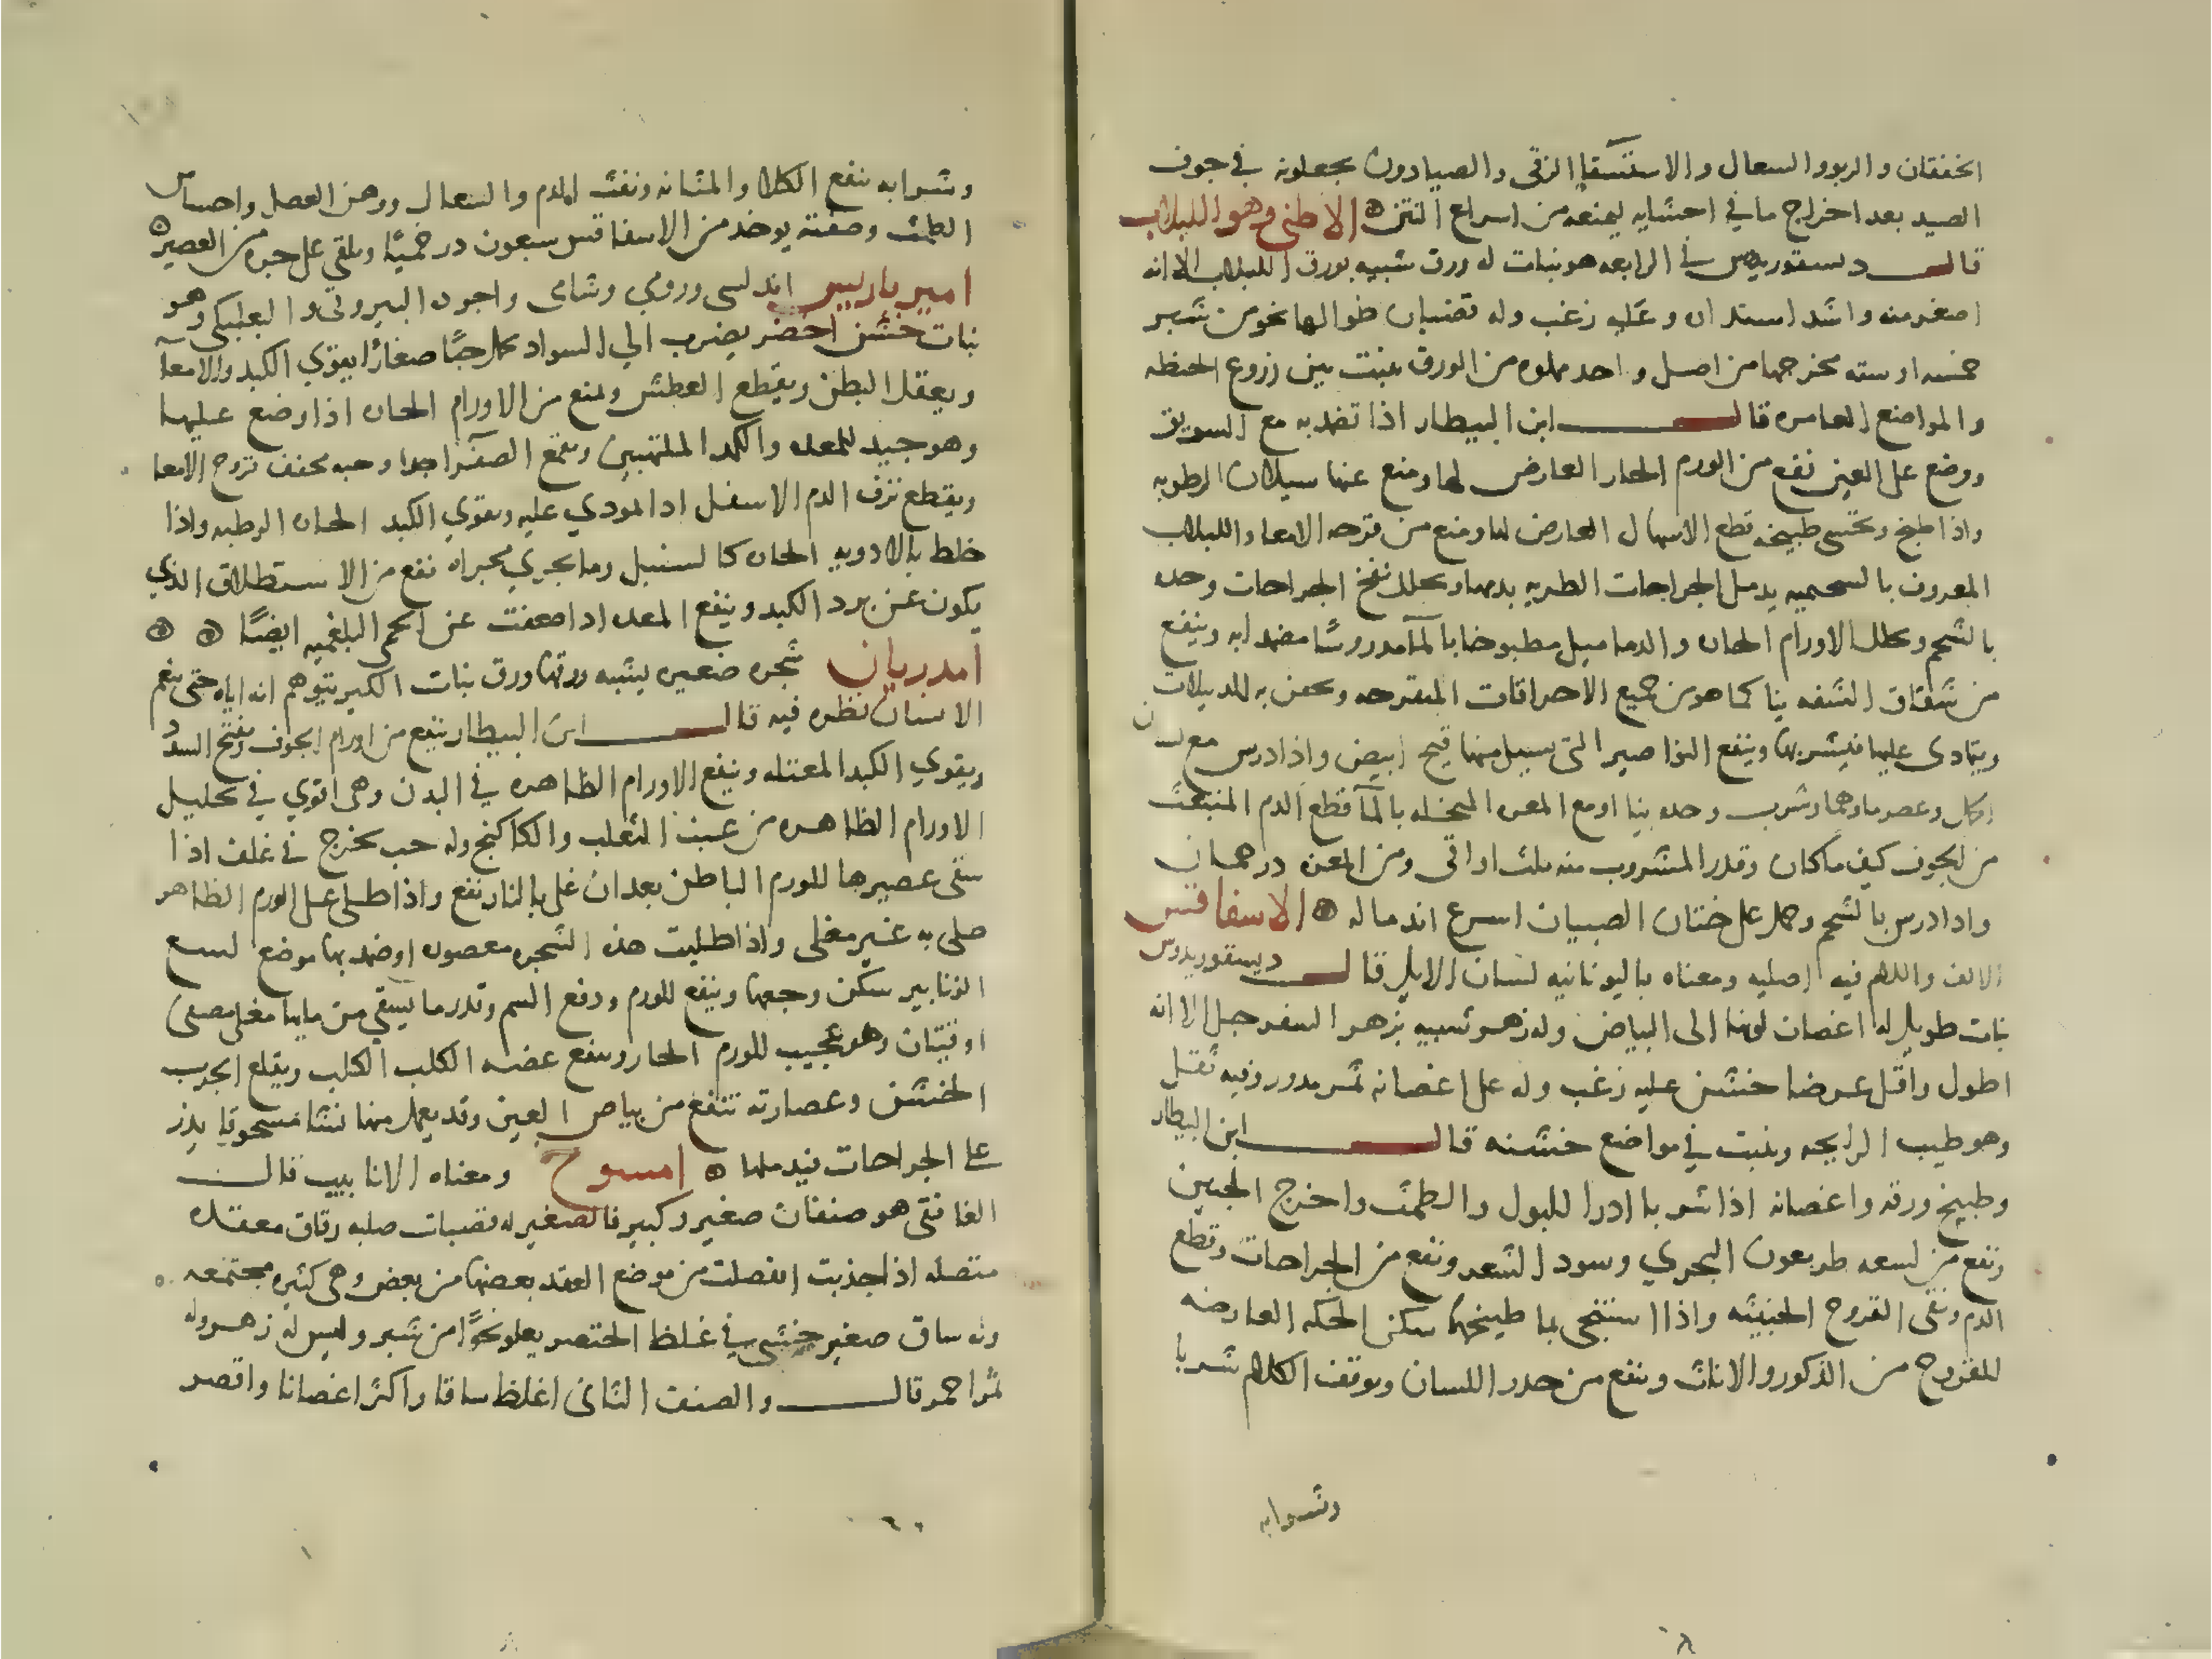 الخفقان والربو والسعال والاستسقا الزقي والصيادون يجعلونه في جوف
الصيد بعد اخراج ما في احشايه ليمنعه من اسراع النتن الاطني وهو اللبلاب
قال دسقوريدس في الرابعه هو نبات له ورق شبيه بورق اللبلاب الا انه
اصغر منه واشد استداره وعليه زغب وله قضبان طوالها نحو من شبر
خمسه او سته مخرجها من اصل واحد مملوه من الورق ينبت بين زروع الحنطه
والمواضع العامره قال ابن البيطار اذا تضمد به مع السويق
ووضع على العين نفع من الورم الحار العارض لها ومنع عنها سيلان الرطوبه
واذا طبخ وتحسى طبيخه قطع الاسهال العارض لها ومنع من قرحه الامعا واللبلاب
المعروف بالسحميه يدمل الجراحات الطريه بدمها ويحلل نفخ الجراحات وحده
بالشحم ويحلل الاورام الحاره والدماميل مطبوخا بالمآ مدروسًا مضمدا به وينفع
من شقاق الشفه نيا كما هو من جميع الاحراقات المتقرحه ويحقن به للدبيلات
ويتمادى عليها فيشربها وينفع النواصير التي يسيل منها قيح ابيض واذا درس مع لسان
الحمل وعصر ماوهما وشرب وحده نيا او مع المغره المنخله بالمآ قطع الدم المنبعث
من الجوف كيف ما كان وقدر المشروب منه ثلث اواقي ومن المغره درهمان
واذا درس بالشحم وحمل على ختان الصبيان اسرع اندماله الاسفاقس
الالف واللام فيه اصليه ومعناه باليونانيه لسان الايل قال ديسقوريدوس
نبات طويل له اغصان لونها الى البياض وله زهر شبيه بزهر السفرجل الا انه
اطول واقل عرضا خشن عليه زغب وله على اغصانه ثمر مدور وفيه ثقل
وهو طيب الرايحه وينبت في مواضع خشنه قال ابن البيطار
وطبيخ ورقه واغصانه اذا شربا ادرا للبول والطمث واخرج الجنين
ونفع من لسعه طريغون البحري وسود الشعر ونفع من الجراحات وقطع
الدم ونقى القروح الخبيثه واذا استنجى بما طبيخها سكن الحكه العارضه
للفروج من الذكور والاناث وينفع من خدر اللسان وتوقف الكلام شربا
وشرابه
وشرابه ينفع الكلا والمثانه ونفث الدم والسعال ووهن العضل واحتباس
الطمث وصفته يوخذ من الاسفاقس سبعون درخميًا ويلقى على جره من العصير
اميرباريس اندلسي ورومي وشامي واجوده البيروتي والبعلبكي وهو
نبات خشن اخضر يضرب الي السواد يحمل حبًا صغارًا يقوي الكبد والامعآ
ويعقل البطن ويقطع العطش ويمنع من الاورام الحاره اذا وضع عليها
وهو جيد للمعده والكبد الملتهبين ويقمع الصفرا جدا وحبه يجفف قروح الامعا
ويقطع نزف الدم الاسفل اذا لمودي عليه ويقوي الكبد الحاره الرطبه واذا
خلط بالادويه الحاره كالسنبل وما يجري مجراه نفع من الاستطلاق الذي
يكون عن برد الكبد وينفع المعده اذا ضعفت عن الحمى البلغميه ايضًا
امدريان شجره صغيره يشبه ورقها ورق نبات الكبر يتوهم انه اياه حتى ينعم
الانسان نظره فيه قال ابن البيطار ينفع من اورام الجوف وتفتح السدد
ويقوي الكبد المعتله وينفع الاورام الظاهره في البدن وهي اقوي في تحليل
الاورام الظاهره من عنب الثعلب والكاكنج وله حب يخرج في غلف اذا
سقى عصيرها للورم الباطن بعد ان غلي بالنار نفع واذا طلي على الورم الظاهر
طلى به غير مغلى واذا طليت هذه الشجره معصوره او ضمد بها موضع لسع
الزنابير سكن وجعها وينفع للورم ودفع السم وقدر ما يسقى من مايها مغلى مصفى
اوقيتان وهو عجيب للورم الحار وينفع عضه الكلب الكلب ويقلع الجرب
الخشن وعصارته تنفع من بياض العين وقد يعمل منها نشا مسحوقا يذر
على الجراحات فيدملها امسوح ومعناه الانابيب قال
الغافقي هو صنفان صغير وكبير فالصغير له قضبان صلبه رقاق معقده
متصله اذا جذبت انفصلت من موضع العقد بعضها من بعض وهي كثيره مجتمعه
وله ساق صغير خشبي في غلظ الخنصر يعلو نحوًا من شبر وليس له زهر وله
ثمر احمر قال والصنف الثاني اغلظ ساقا واكثر اغصانا واقصر